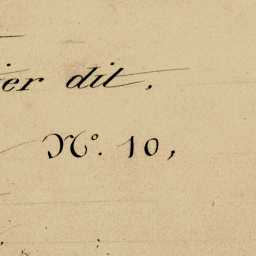 ier dit.
Nº. 10,